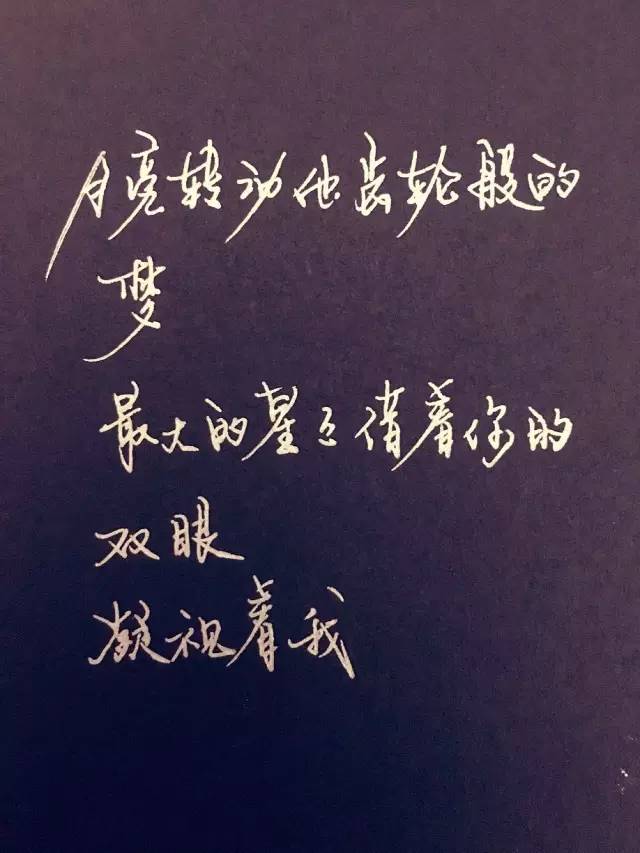 月亮转动他齿轮般的
梦
最大的星星借着你的
双眼
凝视着我